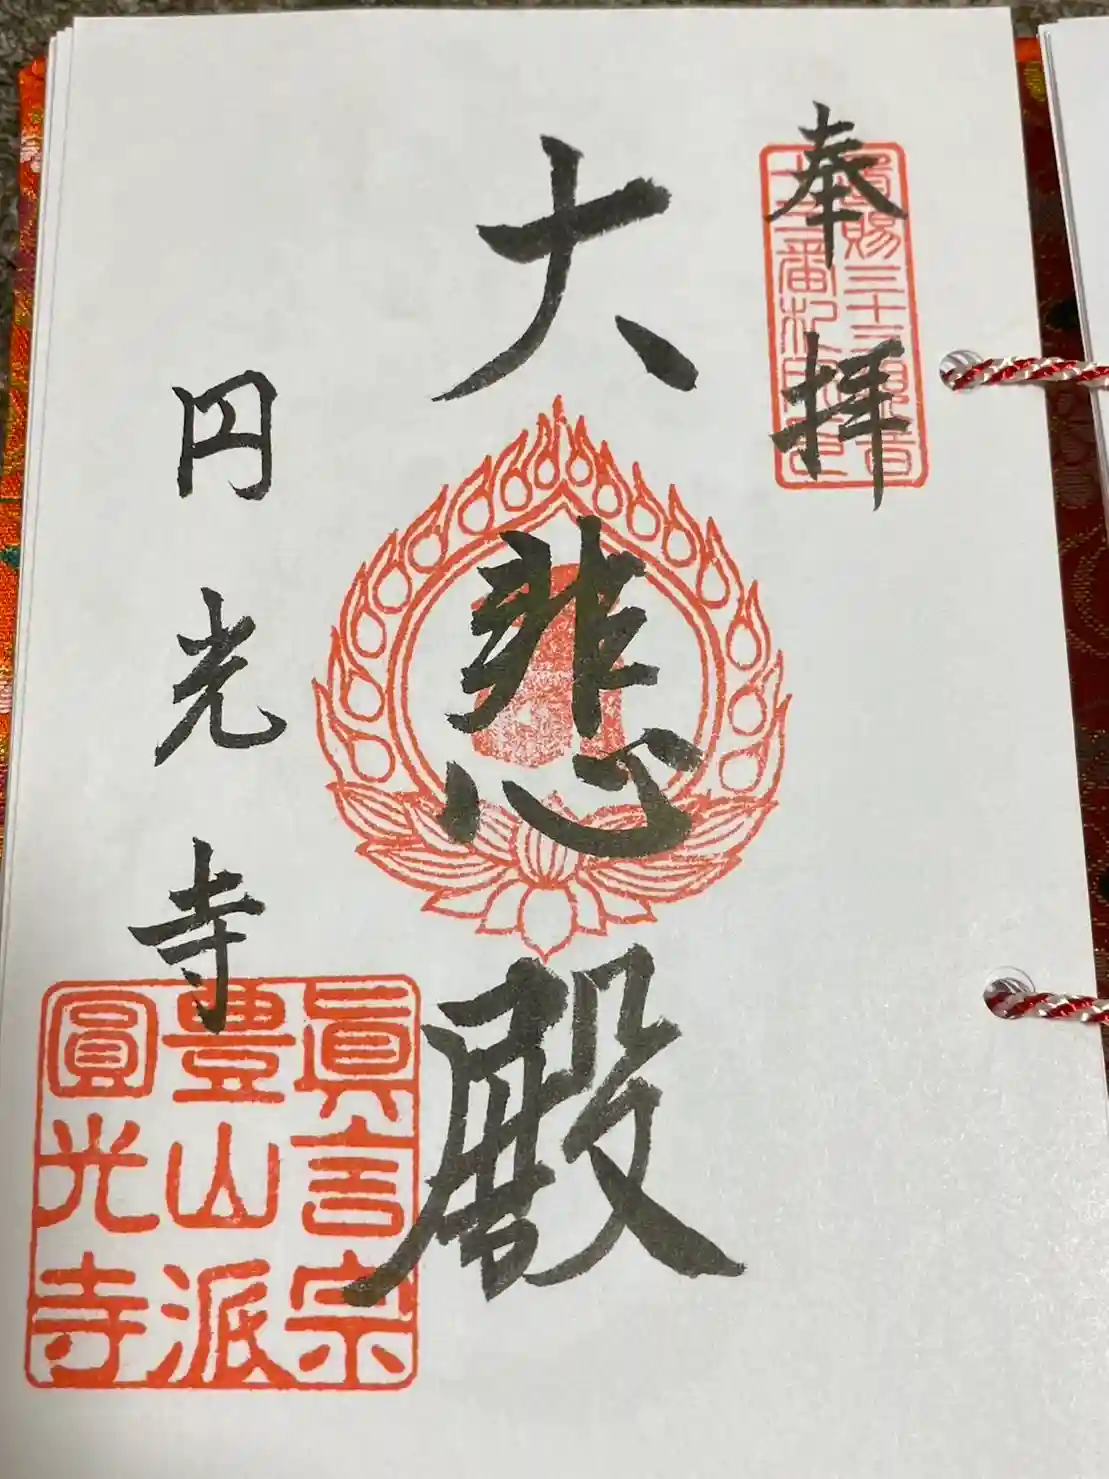 奉拝
賜三十三観音
十三番札所之印
大悲殿
円光寺
眞言宗
豊山派
圓光寺